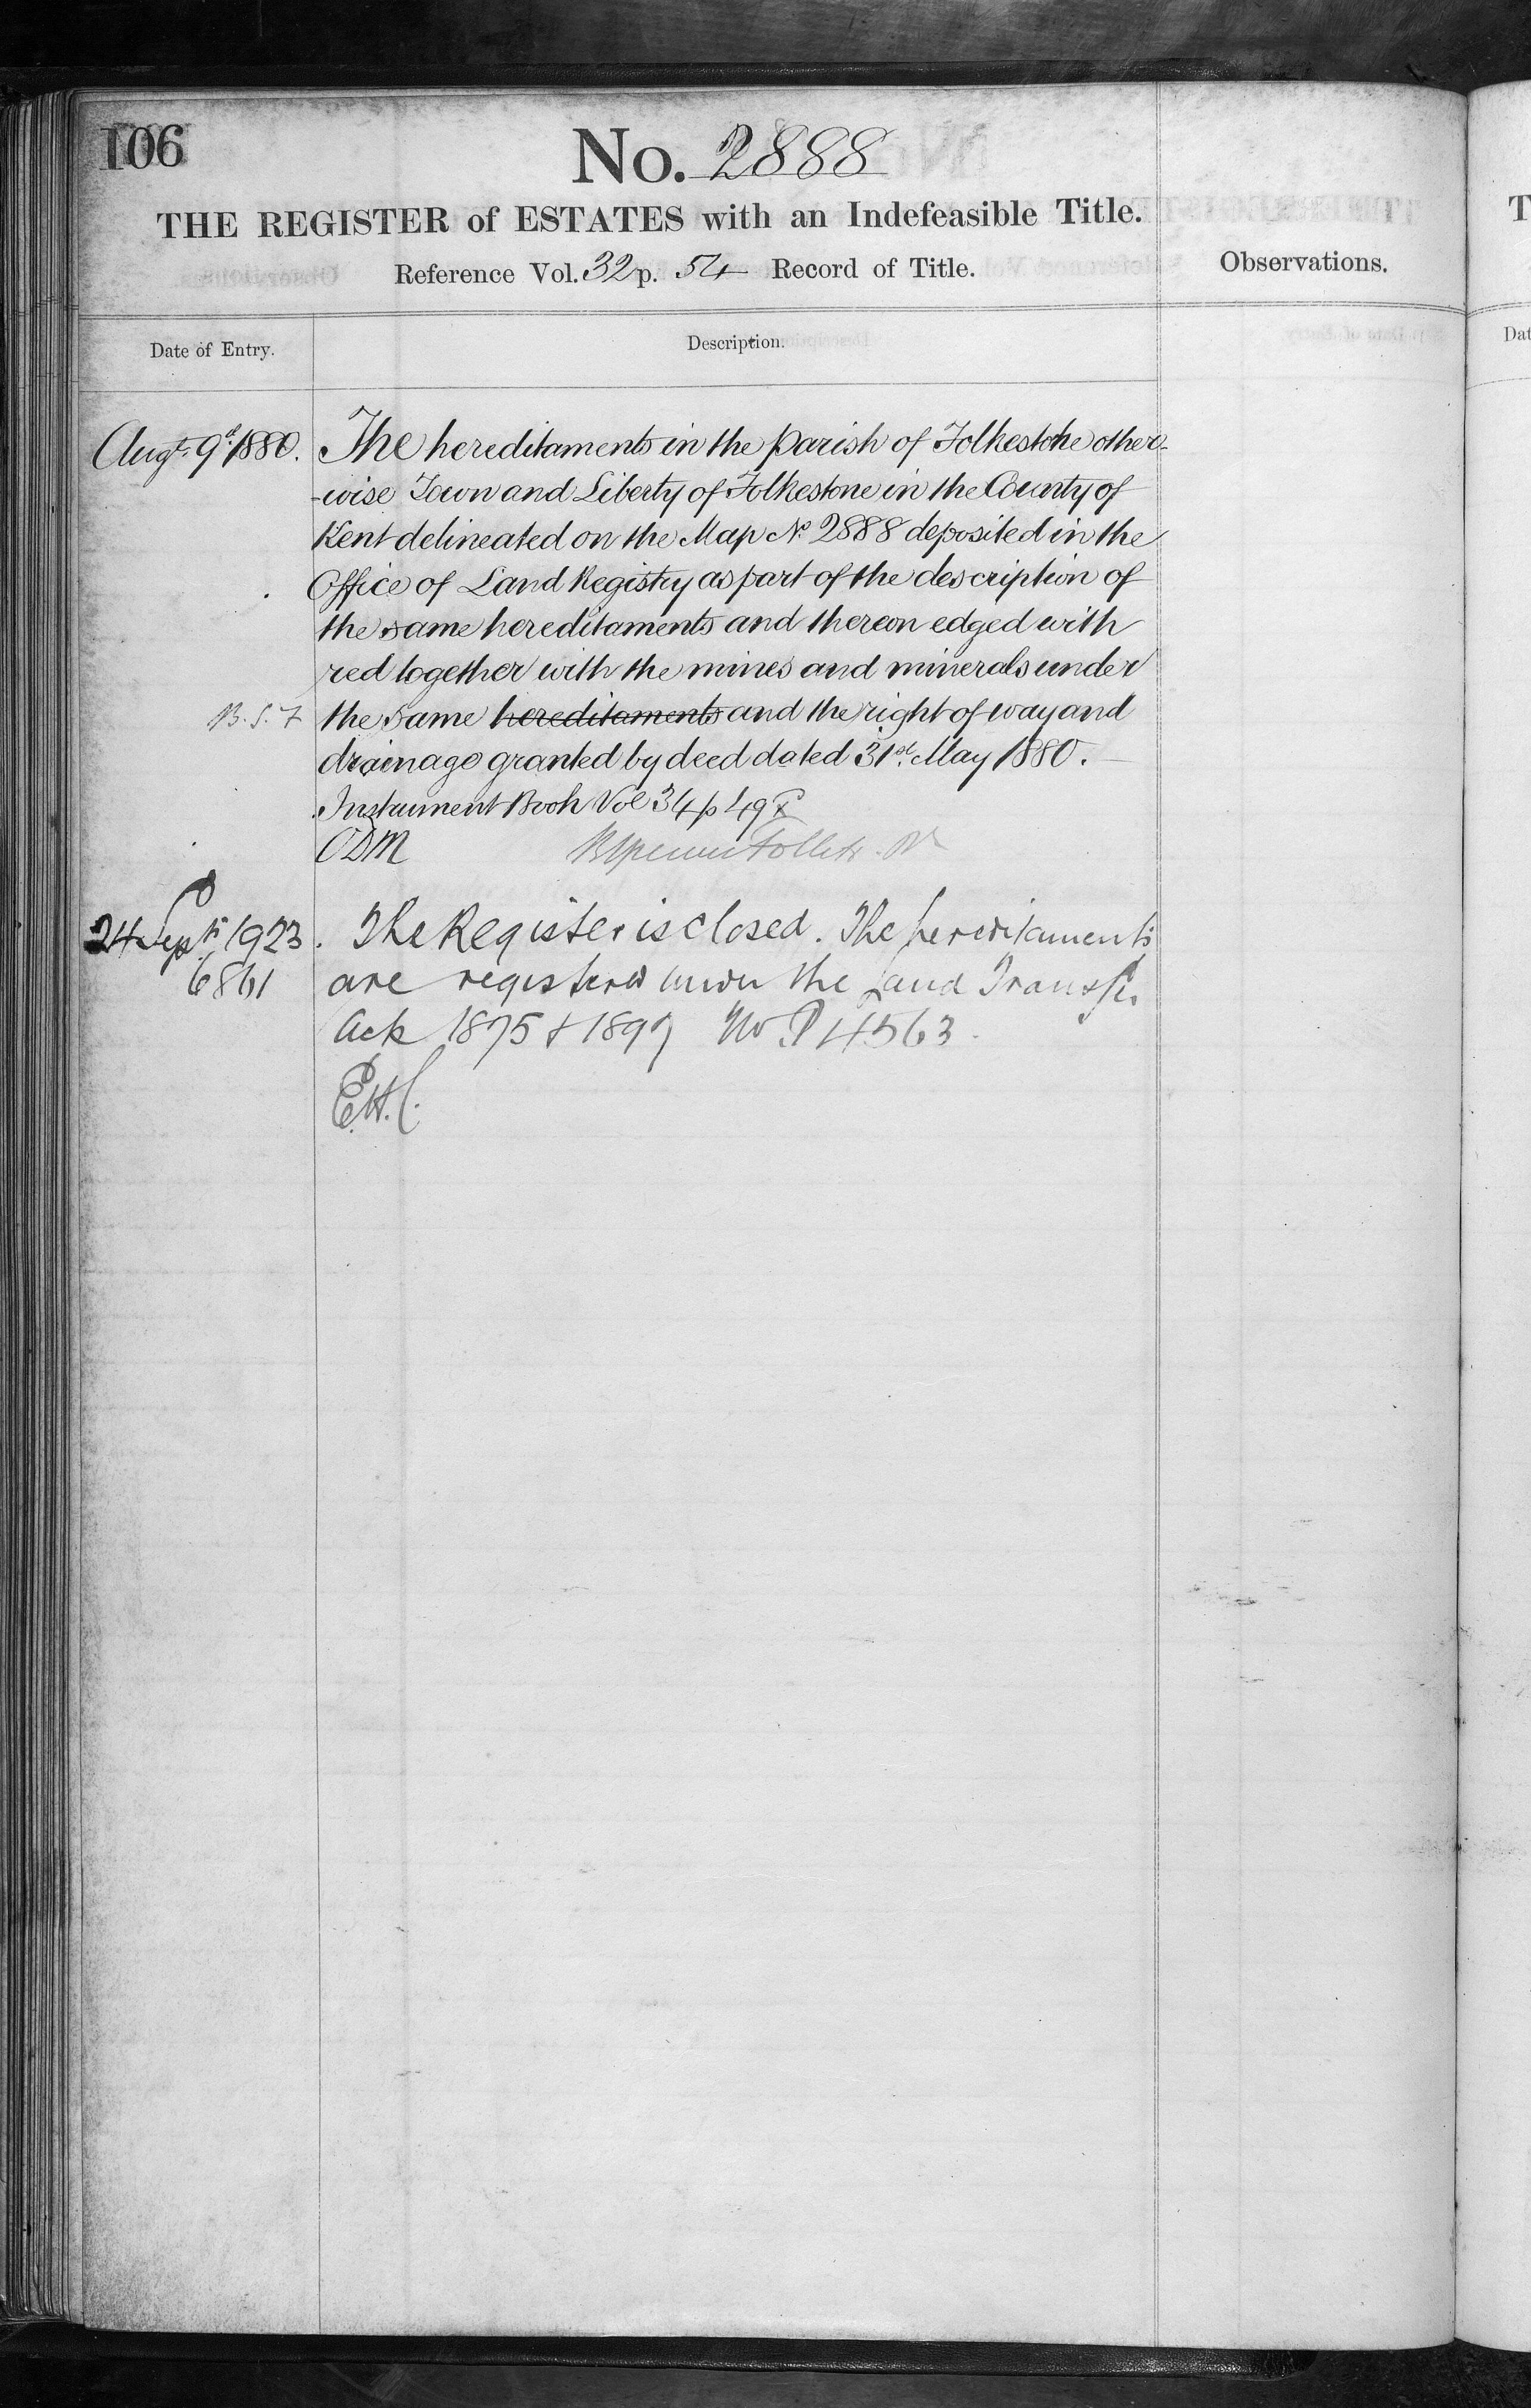 106
No. 2888
THE REGISTER of ESTATES with an Indefeasible Title.
Reference Vol. 32 p. 54 Record of Title.
Observations.
Date of Entry.
Description.
Augt. 9th 1880. The hereditaments in the Parish of Folkestone other-
-wise Town and Liberty of Folkestone in the County of
Kent delineated on the Map No 2888 deposited in the
Office of Land Registry as part of the description of
the same hereditaments and thereon edged with
red together with the mines and minerals under
B.S.F the same hereditaments and the right of way and
drainage granted by deed dated 31st. May 1880.
Instrument Book Vol 34 p 49
ODM
Follett
24 Sept 1923. The Register is closed. The hereditaments
6861 are registered under the Land Transfer
Acts 1875 & 1897 No P4563.
E.H.C.
T
Dat